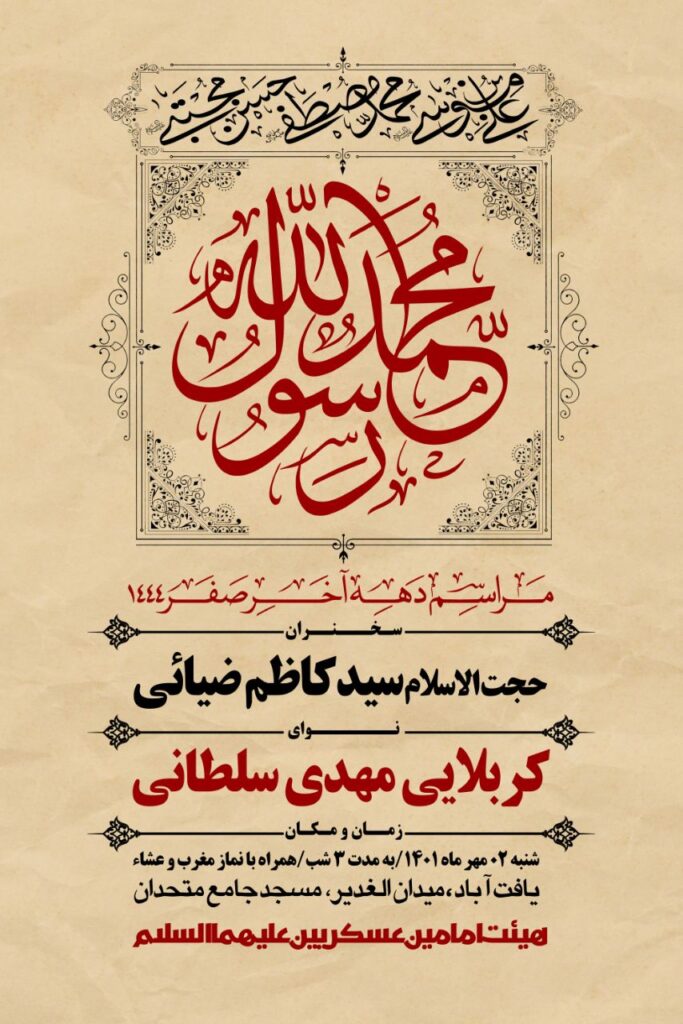 علی بن موسی محمد مصطفی حسن مجتبی
محمد رسول الله
مراسم دهه آخر صفر ۱۴۴۴
سخنران
حجت الاسلام سید کاظم ضیائی
نوای
کربلایی مهدی سلطانی
زمان و مکان
شنبه ۰۲ مهر ماه ۱۴۰۱ / به مدت ۳ شب / همراه با نماز مغرب و عشاء
یافت آباد، میدان الغدیر، مسجد جامع متحدان
هیئت امامین عسکریین علیهما السلام